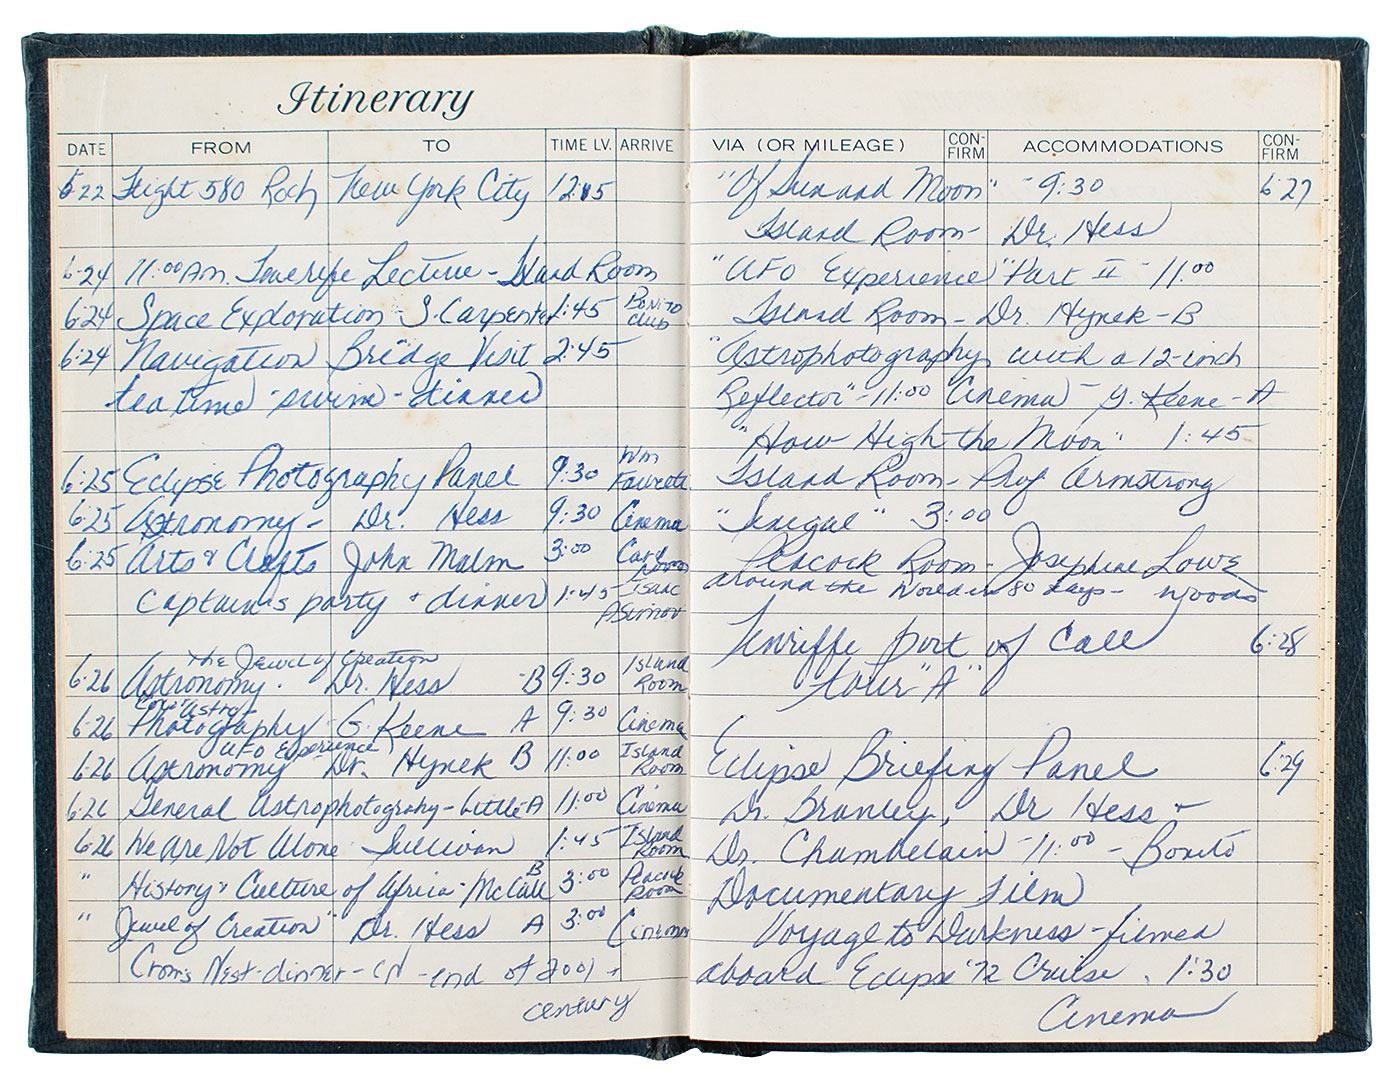 Itinerary
DATE FROM TO TIME LV. ARRIVE
6-22 Flight 580 Roch New York City 12:15
6-24 11:00 Am. Tenerife Lecture - Island Room
6-24 Space Exploration - S. Carpenter 1:45 Bonito Club
6-24 Navigation Bridge Visit 2:45
tea time - swim - dinner
6-25 Eclipse Photography Panel 9:30 Wm Fawcett
6-25 Astronomy - Dr. Hess 9:30 Cinema
6-25 Arts & Crafts John Malm 3:00 Card Room
Captain's party + dinner 1:45 Isaac Asimov
The Jewel of Creation
6-26 Astronomy. Dr. Hess -B 9:30 Island Room
6-26 Photography G. Keene A 9:30 Cinema
UFO Experience
6-26 Astronomy Dr. Hynek B 11:00 Island Room
6-26 General Astrophotograhy - Little A 11:00 Cinema
6-26 We Are Not Alone Sullivan 1:45 Island Room
" History & Culture of Africa - McCall B 3:00 Peacock Room
" Jewel of Creation" Dr. Hess A 3:00 Cinema
Crow's Nest - dinner - end of 2001 +
century
VIA (OR MILEAGE) CON-FIRM ACCOMMODATIONS CON-FIRM
"Of Sun and Moon" - 9:30 6-27
Island Room - Dr. Hess
"UFO Experience" Part II - 11:00
Island Room - Dr. Hynek - B
"Astrophotography with a 12-inch
Reflector" - 11:00 Cinema - G. Keene - A
"How High the Moon" 1:45
Island Room - Prof Armstrong
"Senegal" 3:00
Peacock Room - Josephine Lowe
around the World in 80 days - Woods
Tenriffe Port of Call 6-28
tour "A"
Eclipse Briefing Panel 6-29
Dr. Branley, Dr Hess +
Dr. Chamberlain - 11:00 - Bonito
Documentary Film
Voyage to Darkness - filmed
aboard Eclipse '72 Cruise. 1:30
Cinema